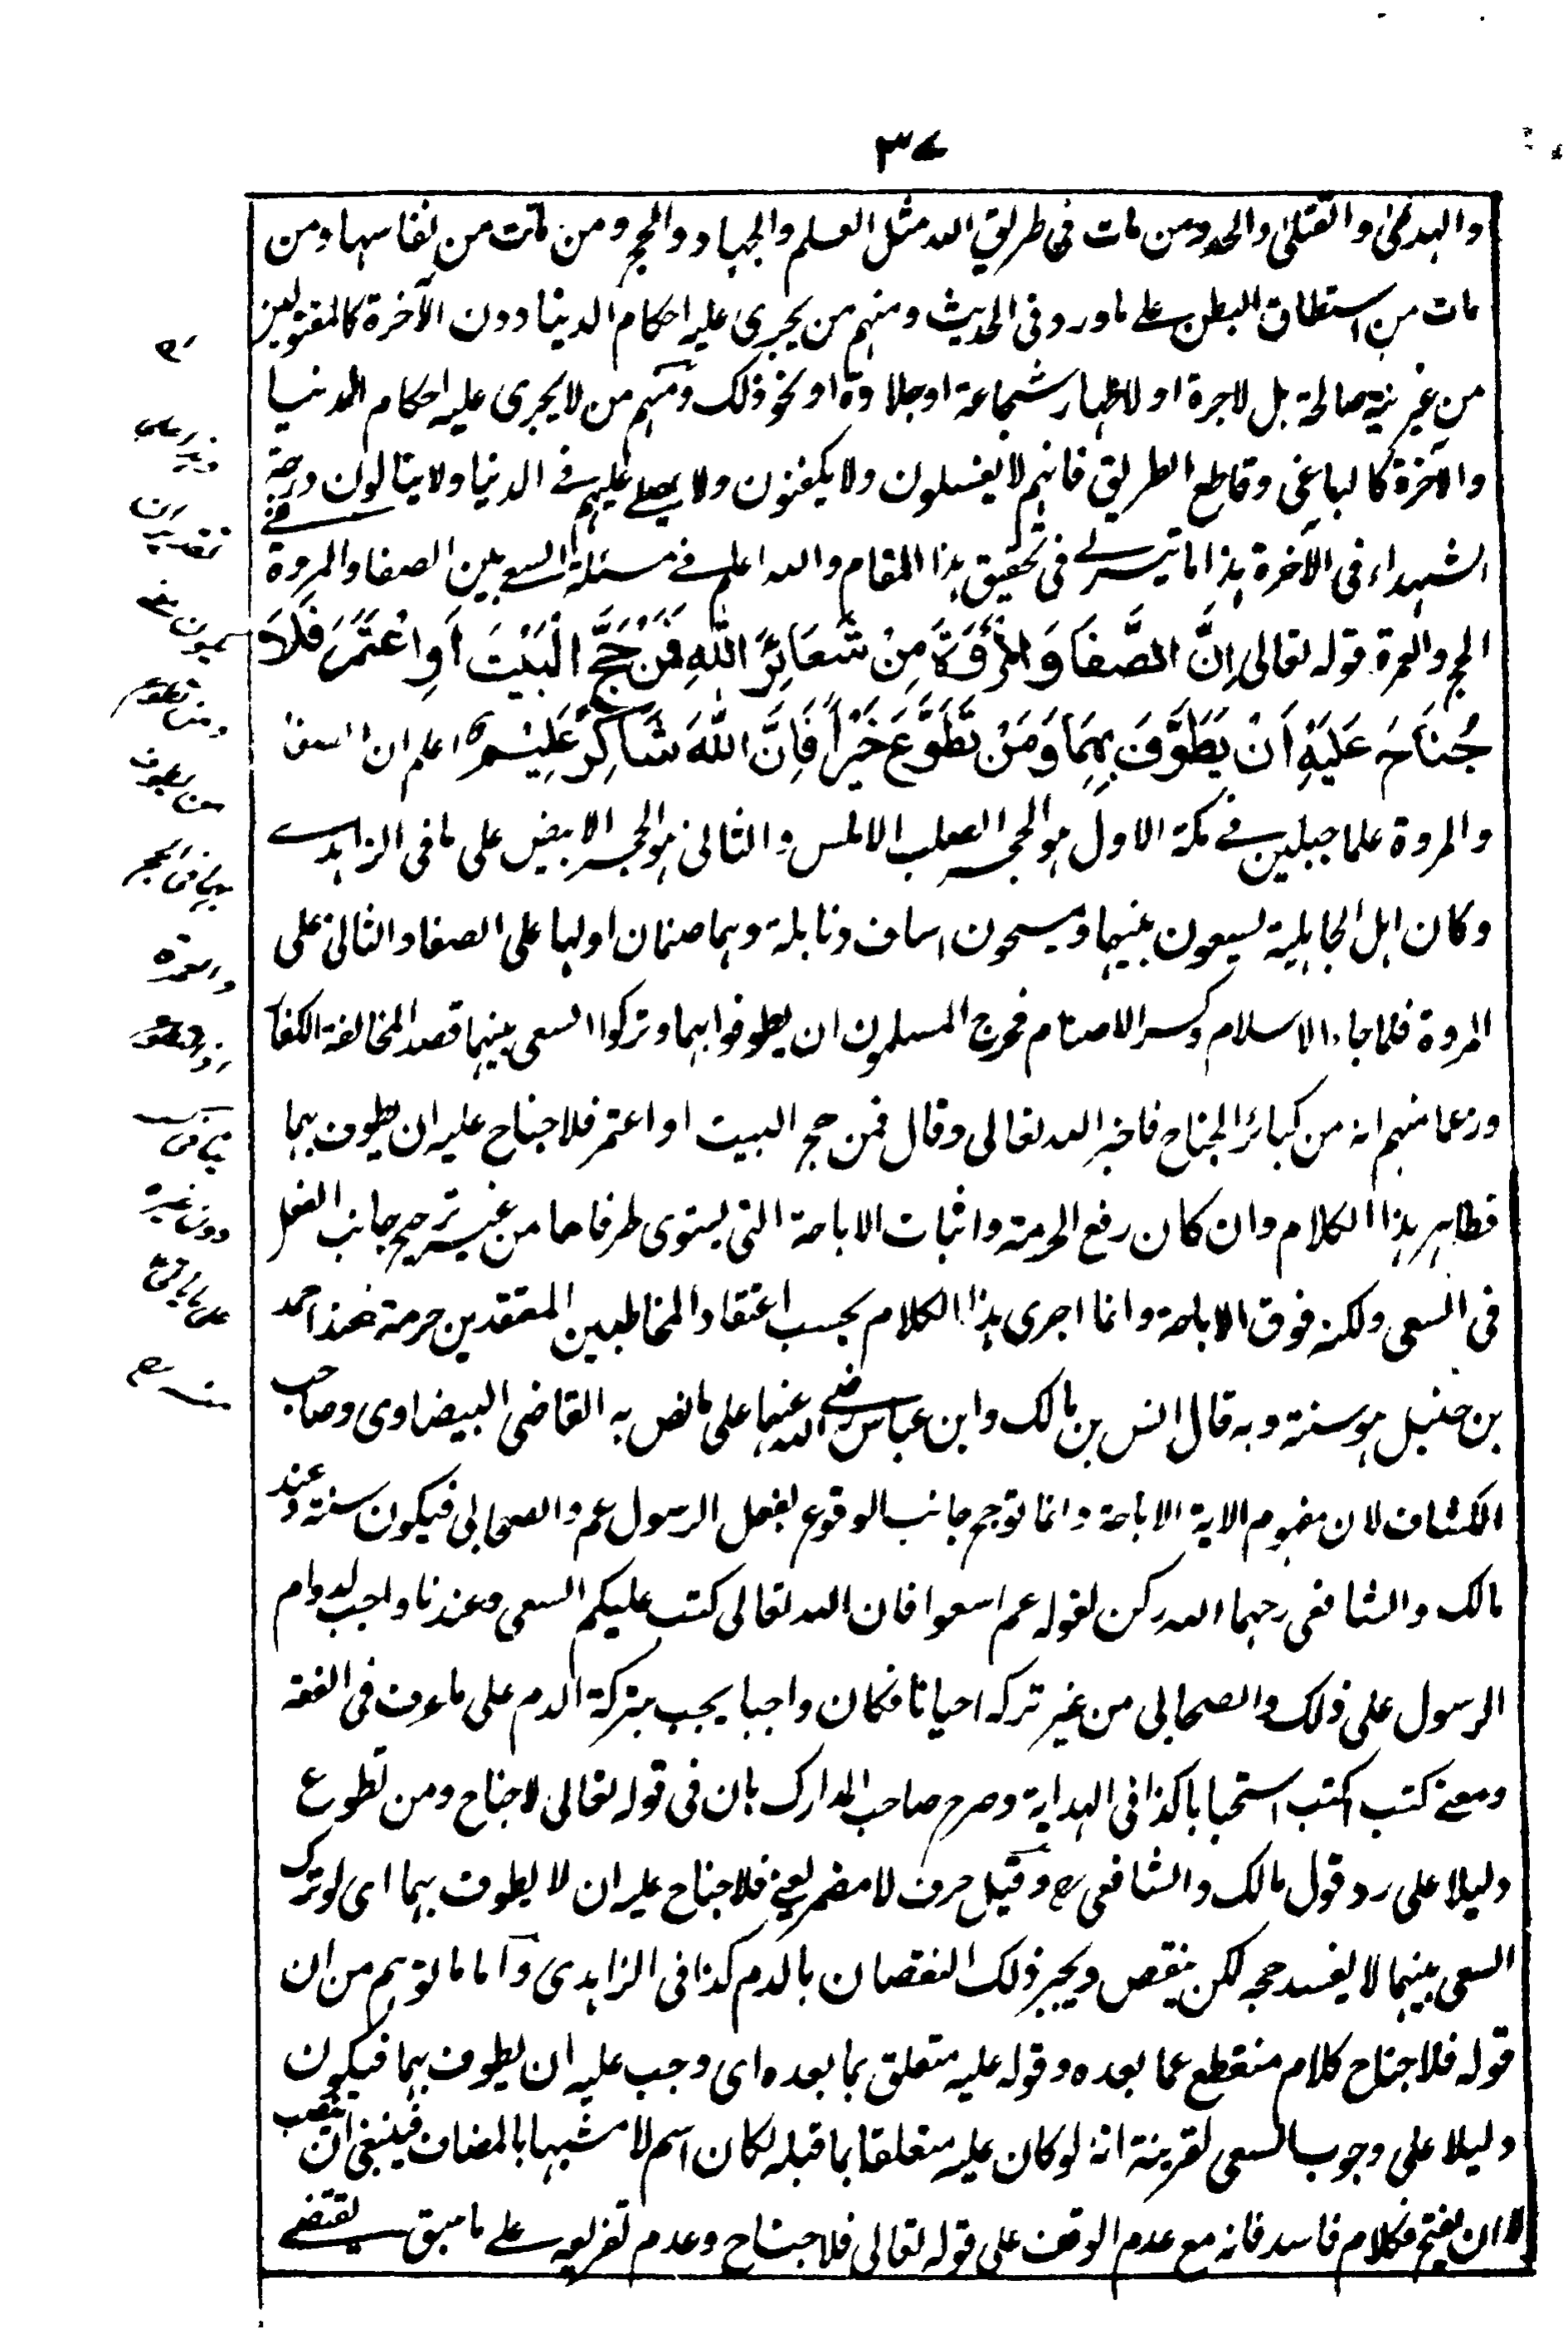 ٣٧
والهدمى والقتلى والحد ومن مات فى طريق الله مثل العلم والجهاد والحج ومن ماتت من نفاسها ومن
مات من استطلاق البطن على ما ورد فى الحديث ومنهم من يجرى عليه احكام الدنيا دون الآخرة كالمقتولين
من غير نية صالحة بل لاجرة او لاظهار شجاعة او جلاوة او نحو ذلك ومنهم من لا يجرى عليه احكام الدنيا
والآخرة كالباغى وقاطع الطريق فانهم لا يغسلون ولا يكفنون ولا يصلے عليهم فے الدنيا ولا ينالون درجة
الشهداء فى الآخرة هذا ما تيسر لے فى تحقيق هذا المقام والله اعلم فے مسئلة السعے بين الصفا والمروة فے
الحج والعمرة قوله تعالى اِنَّ الصَّفَا وَالْمَرْوَةَ مِنْ شَعَائِرِ اللّٰهِ فَمَنْ حَجَّ الْبَيْتَ اَوِ اعْتَمَرَ فَلَا
جُنَاحَ عَلَيْهِ اَنْ يَطَّوَّفَ بِهِمَا وَمَنْ تَطَوَّعَ خَيْرًا فَاِنَّ اللّٰهَ شَاكِرٌ عَلِيْمٌ اعلم ان الصفا
والمروة علما جبلين فے مكة الاول هو الحجر الصلب الاملس والثانى هو الحجر الابيض على ما فى الزاهدے
وكان اهل الجاهلية يسعون بينهما ويمسحون اساف ونايلة وهما صنمان اولها على الصفا والثانى على
المروة فلما جاء الاسلام وكسر الاصنام فحرج المسلمون ان يطوفوا بهما وتركوا السعى بينهما قصد المخالفة الكفا
وزعما منهم انه من كبائر الجناح فاخبر الله تعالى وقال فمن حج البيت او اعتمر فلا جناح عليه ان يطوف بهما
فظاهر هذا الكلام وان كان رفع الحرمة واثبات الاباحة التى يستوى طرفاها من غير ترجيح جانب الفعل
فى السعى ولكنه فوق الاباحة وانما اجرى هذا الكلام بحسب اعتقاد المخاطبين المعتقدين حرمة فعند احمد
بن حنبل هو سنة وبه قال انس بن مالك وابن عباس رضے الله عنهما على ما نص به القاضى البيضاوى وصاحب
الكشاف لان مفهوم الاية الاباحة وانما توجح جانب الوقوع بفعل الرسول عم والصحابى فيكون سنة وعند
مالك والشافعى رحهما الله ركن لقوله عم اسعوا فان الله تعالى كتب عليكم السعى وعندنا واجب لدوام
الرسول على ذلك والصحابى من غير تركه احيانا فكان واجبا يجب بتركه الدم على ما عرف فى الفقه
ومعنے كتب اكتب استحبابا كذا فى الهداية وصرح صاحب المدارك بان فى قوله تعالى لا جناح ومن تطوع
دليلا على رد قول مالك والشافعى رح وقيل حرف لا مضمر يعنے فلا جناح عليه ان لا يطوف بهما اى لو ترك
السعى بينهما لا يفسد حجه لكن ينقص ويجبر ذلك النقصان بالدم كذا فى الزاهدى وآما ما توهم من ان
قوله فلا جناح كلام منقطع عما بعده وقوله عليه متعلق بما بعده اى وجب عليه ان يطوف بهما فيكون
دليلا على وجوب السعى لقرينة انه لو كان عليه متعلقا بما قبله لكان اسم لا مشبها بالمضاف فينبغى ان ينصب
لا ان يفتح فكلام فاسد فانه مع عدم الوقف على قوله تعالى فلا جناح وعدم تفريعه علے ما سبق يقتضے
والعمرة
دون غيره